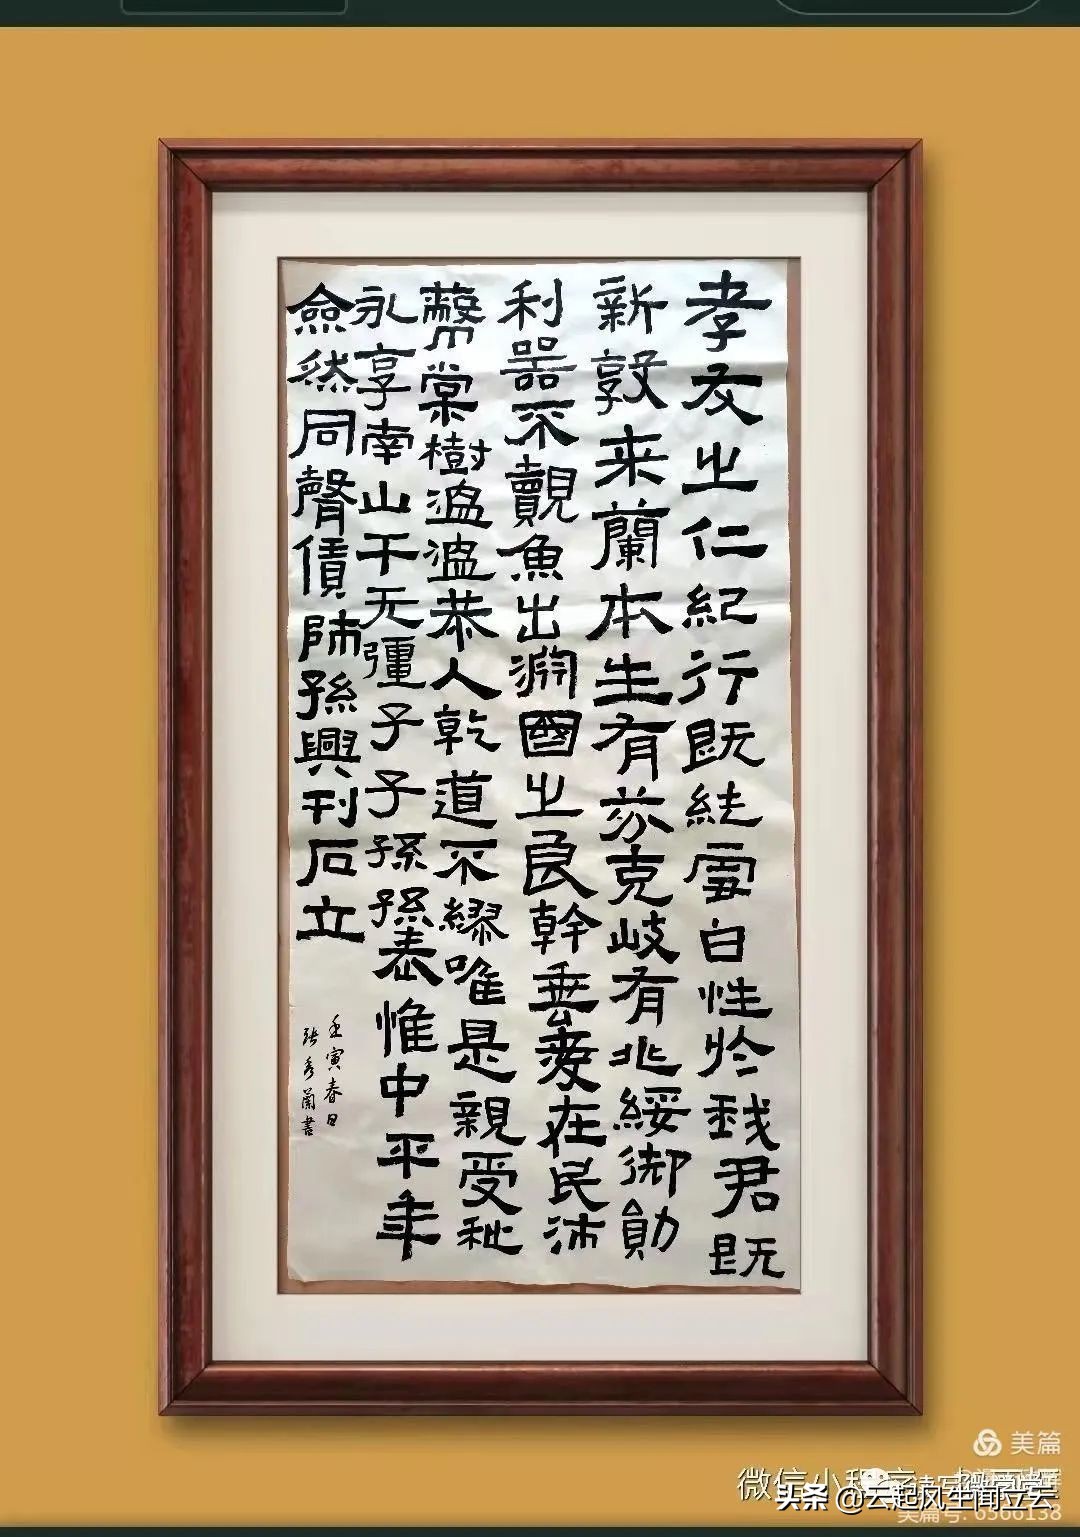 孝友之仁紀行既純雪白性於我君既
新敦来蘭本生有芬克岐有兆綏御勛
利器不覿魚出淵國之良幹垂愛在民沛
棠樹温温恭人乾道不繆唯是親受祉
永享南山干无彊子子孫孫表惟中平年
僉然同聲債師孫興刊石立
壬寅春日
張秀蘭書
美篇
微信小程序
头条 @云起风生闻立云
美篇号: 6566138